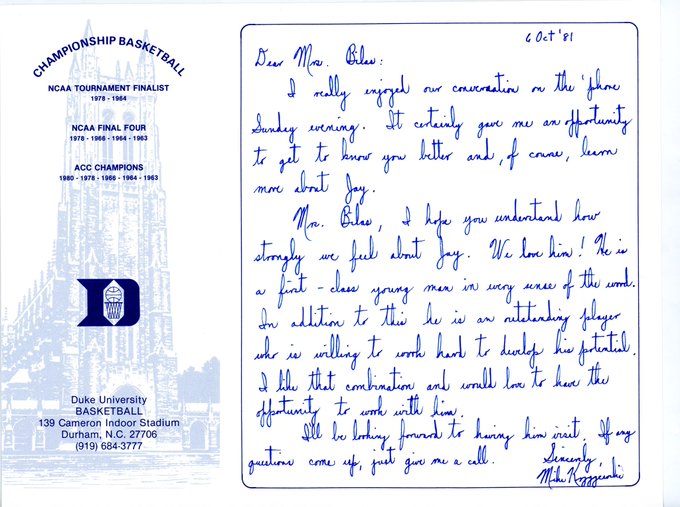 CHAMPIONSHIP BASKETBALL
NCAA TOURNAMENT FINALIST
1978 - 1964
NCAA FINAL FOUR
1978 - 1966 - 1964 - 1963
ACC CHAMPIONS
1980 - 1978 - 1966 - 1964 - 1963
D
Duke University
BASKETBALL
139 Cameron Indoor Stadium
Durham, N.C. 27706
(919) 684-3777
6 Oct '81
Dear Mrs. Bilas:
I really enjoyed our conversation on the 'phone
Sunday evening. It certainly gave me an opportunity
to get to know you better and, of course, learn
more about Jay.
Mrs. Bilas, I hope you understand how
strongly we feel about Jay. We love him! He is
a first-class young man in every sense of the word.
In addition to this he is an outstanding player
who is willing to work hard to develop his potential.
I like that combination and would love to have the
opportunity to work with him.
I'll be looking forward to having him visit. If any
questions come up, just give me a call.
Sincerely,
Mike Krzyzewski